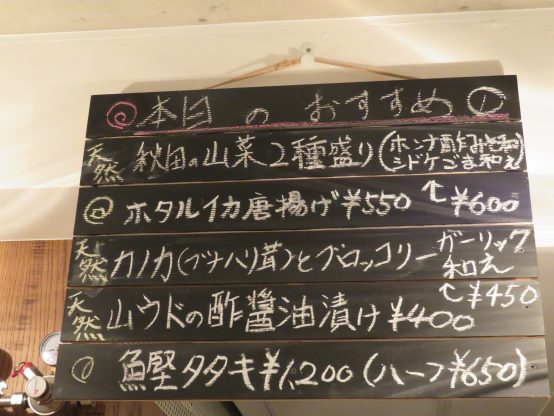 本日のおすすめ①
天然 秋田の山菜2種盛り(ホンナ酢みそ和え
シドケごま和え)
¥600
ホタルイカ唐揚げ¥550
天然 カノカ(ブナハリ茸)とブロッコリーガーリック
和え
¥450
天然 山ウドの酢醤油漬け¥400
鰹タタキ¥1,200(ハーフ¥650)